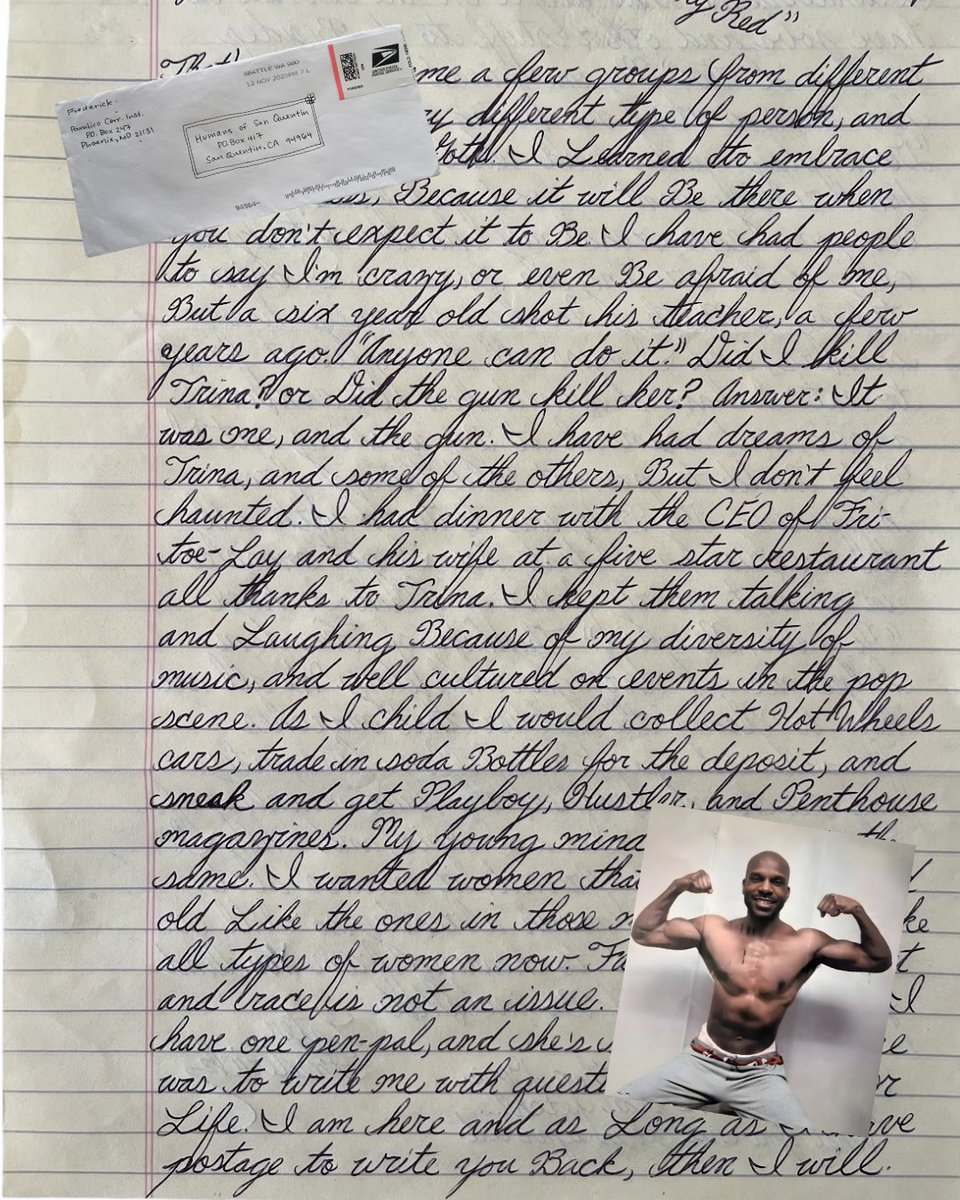 y Red"
SEATTLE WA 980
12 NOV 2025 PM 7 L
FOREVER
UNITED STATES
POSTAL SERVICE
Frederick
Pamlico Corr. Inst.
P.O. Box 247
Phoenix, MD 21131
Humans of San Quentin
PO Box 417
San Quentin, CA 94964
94964-
That' me a few groups from different
different type of person, and
Goth. I Learned to embrace
Because it will Be there when
you don't expect it to Be. I have had people
to say I'm crazy, or even Be afraid of me,
But a six year old shot his teacher, a few
years ago. "Anyone can do it." Did I kill
Trina? or Did the gun kill her? Answer: It
was me, and the gun. I have had dreams of
Trina, and some of the others, But I don't feel
haunted. I had dinner with the CEO of Fri-
toe-Lay and his wife at a five star restaurant
all thanks to Trina. I kept them talking
and Laughing Because of my diversity of
music, and well cultured on events in the pop
scene. As I child I would collect Hot Wheels
cars, trade in soda Bottles for the deposit, and
sneak and get Playboy, Hustler, and Penthouse
magazines. My young mind
same. I wanted women that
old Like the ones in those
all types of women now.
and race is not an issue. I
have one pen-pal, and she's
was to write me with
Life. I am here and as Long as I have
postage to write you Back, then I will.